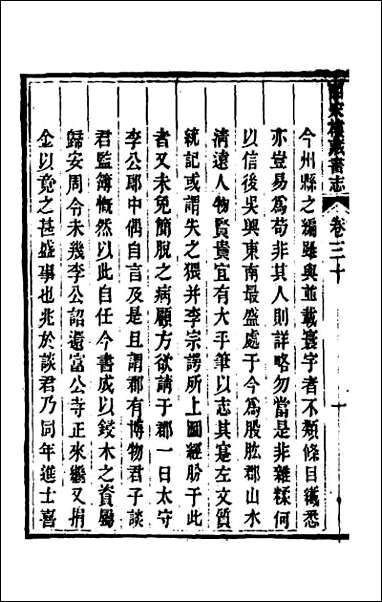 皕宋樓藏書志　卷三十　十
今州縣之編雖與並載寰宇者不類條目纖悉
亦豈易爲苟非其人則詳略勿當是非雜糅何
以信後吳興東南最盛處于今爲股肱郡山水
清遠人物賢貴宜有大手筆以志其寔左文質
統記或謂失之猥并李宗諤所上圖經胗于此
者又未免簡脫之病願方欲請于郡一日太守
李公郎中偶自言及是且謂郡有博物君子談
君監簿慨然以自任今書成以鋟木之資屬
歸安周令未幾李公詔還富公寺正來繼又捐
金以竟之甚盛事也兆於談君乃同年進士喜